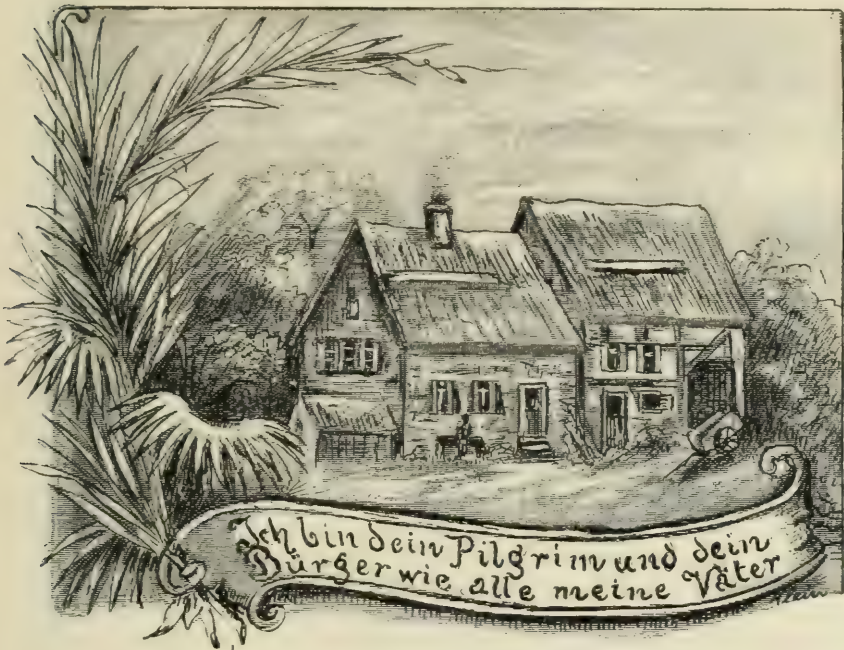 Ich bin dein Pilgrim und dein
Bürger wie alle meine Väter